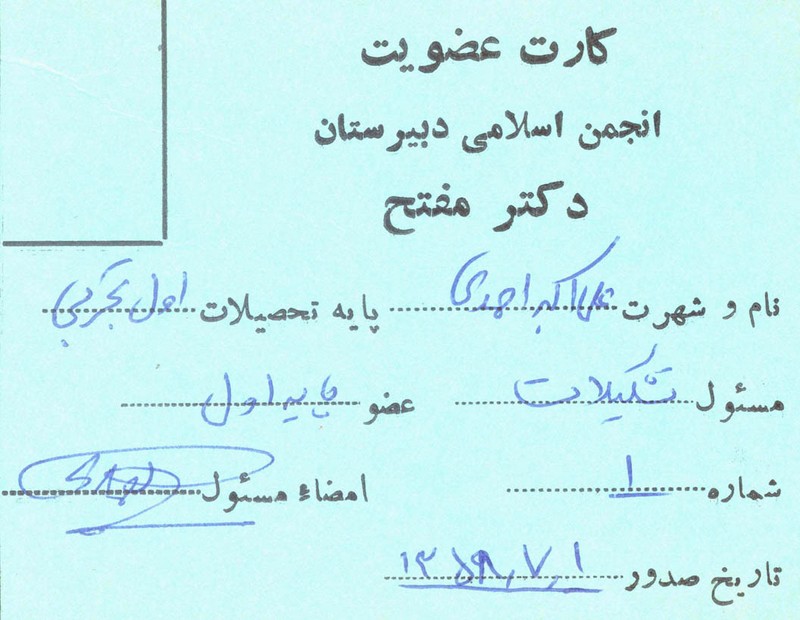 کارت عضویت
انجمن اسلامی دبیرستان
دکتر مفتح
نام و شهرت علی اکبر احمدی پایه تحصیلات اول تجربی
مسئول تشکیلات عضو پایه اول
شماره ۱ امضاء مسئول
تاریخ صدور ۱۳۵۹,۷,۱